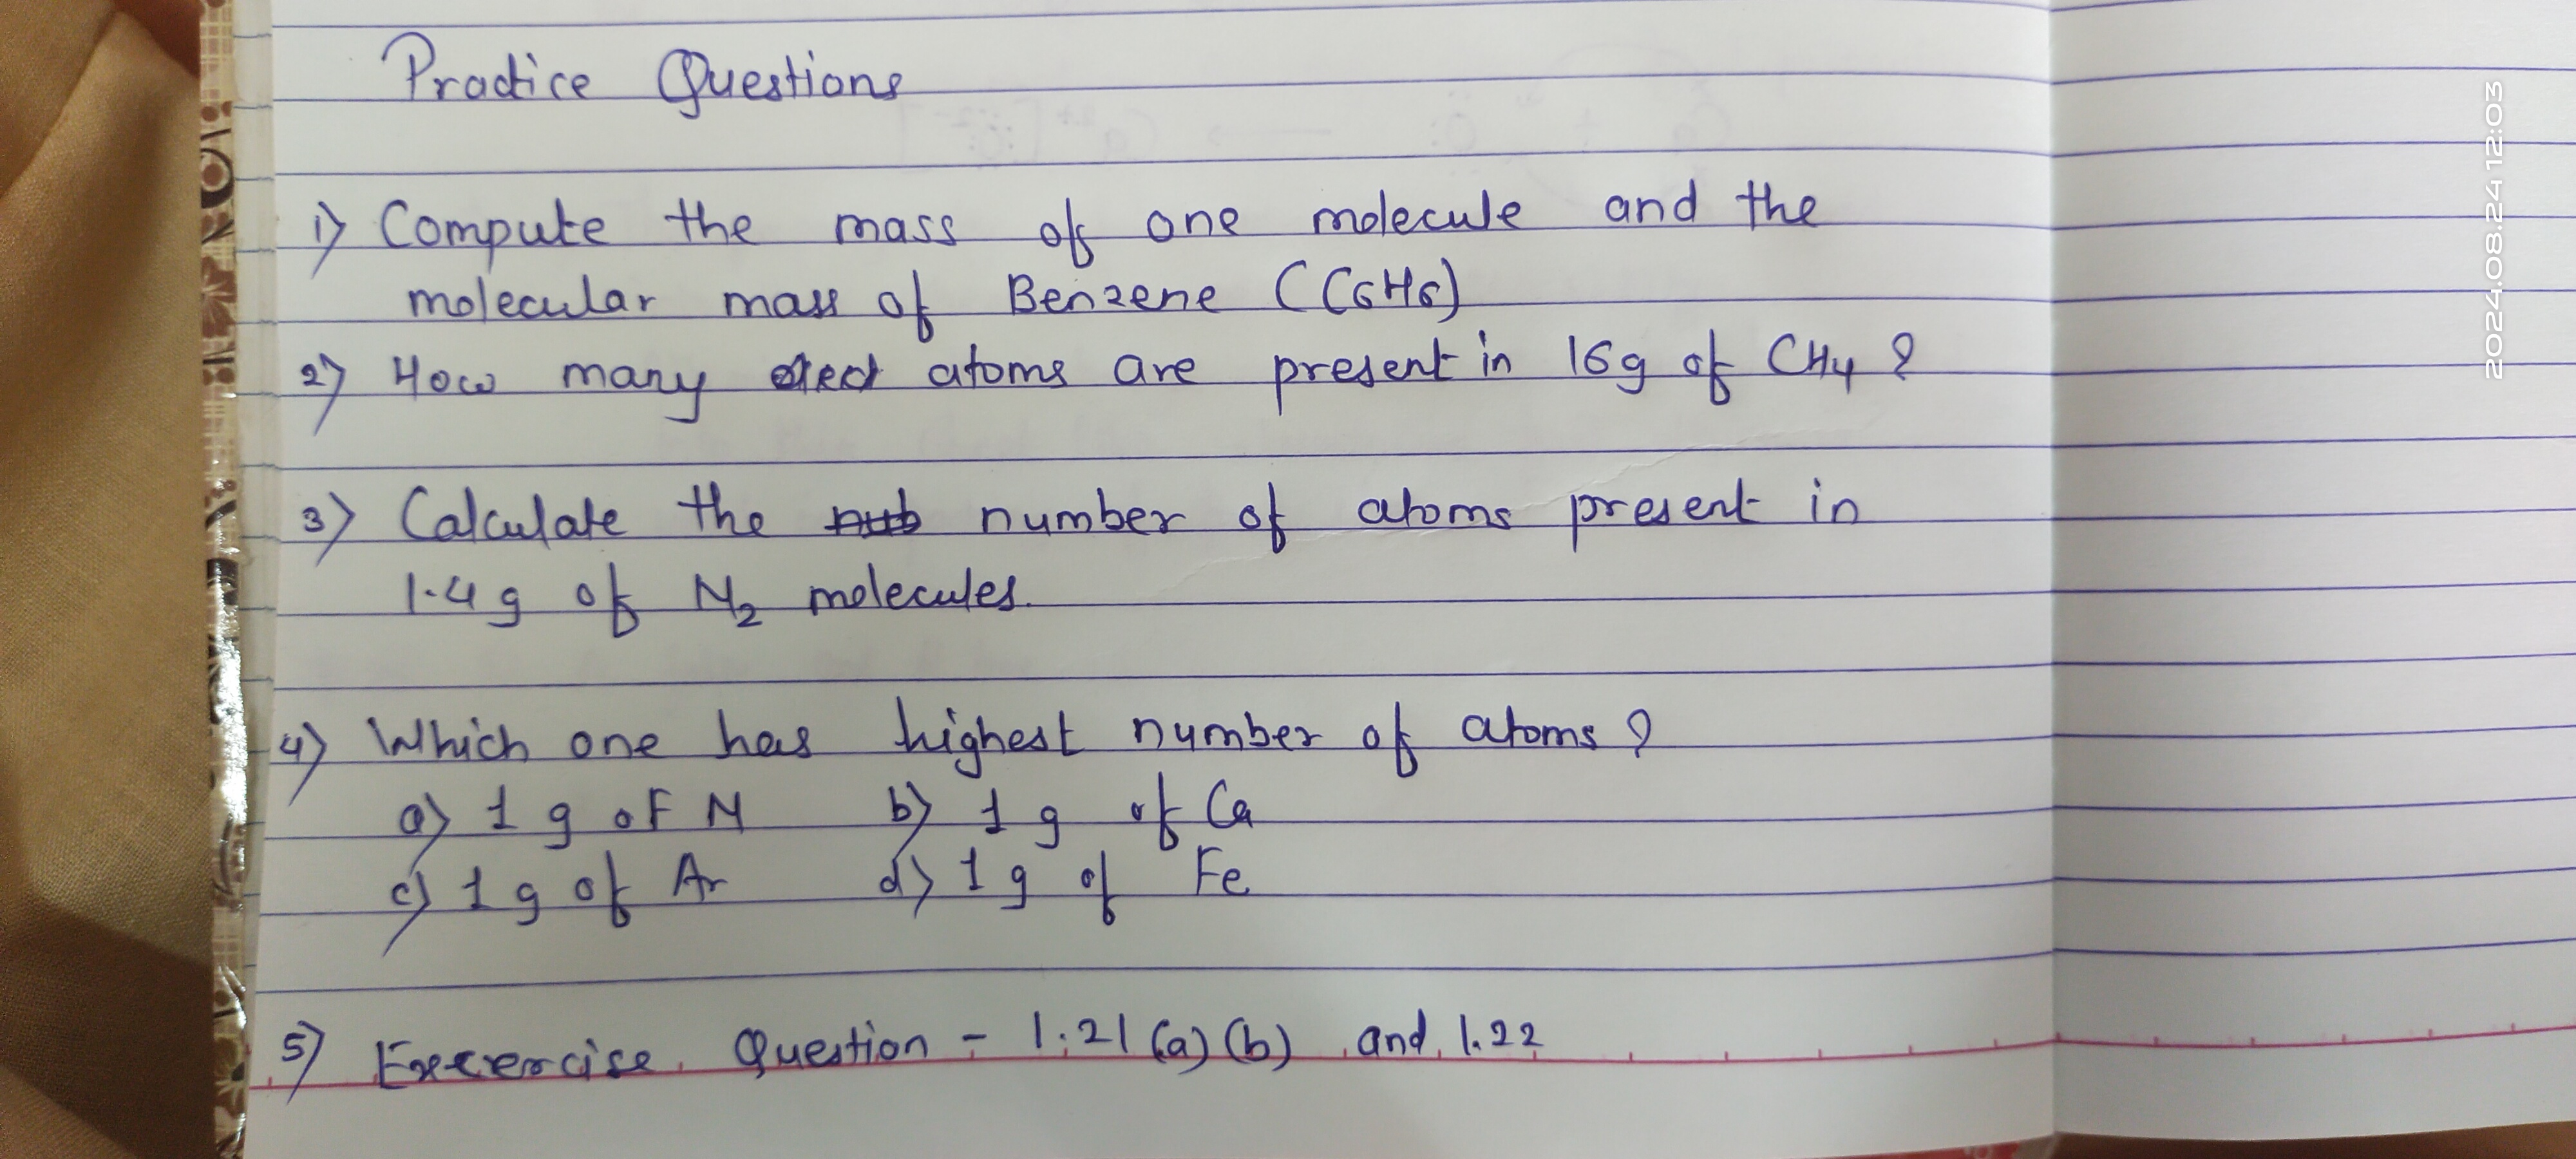 Practice Questions
1) Compute the mass of one molecule and the
molecular mass of Benzene (C6H6)
2) How many atoms are present in 16g of CH4 ?
3) Calculate the number of atoms present in
1.4 g of N2 molecules.
4) Which one has highest number of atoms ?
a) 1 g of N b) 1 g of Ca
c) 1 g of Ar d) 1 g of Fe
5) Excercise Question - 1.21 (a) (b) and 1.22
2024.08.24 12:03